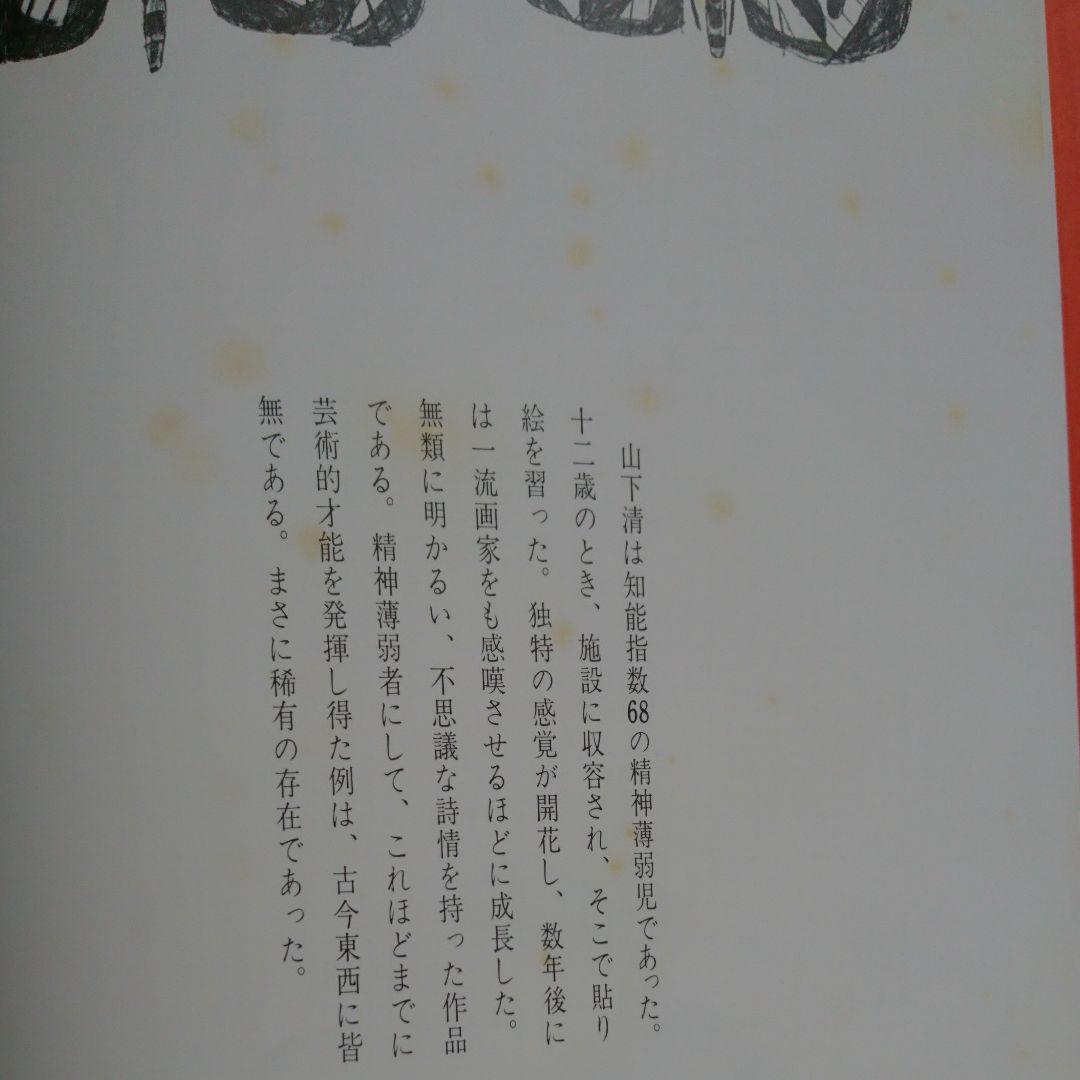 山下清は知能指数68の精神薄弱児であった。
十二歳のとき、施設に収容され、そこで貼り
絵を習った。独特の感覚が開花し、数年後に
は一流画家をも感嘆させるほどに成長した。
無類に明かるい、不思議な詩情を持った作品
である。精神薄弱者にして、これほどまでに
芸術的才能を発揮し得た例は、古今東西に皆
無である。まさに稀有の存在であった。